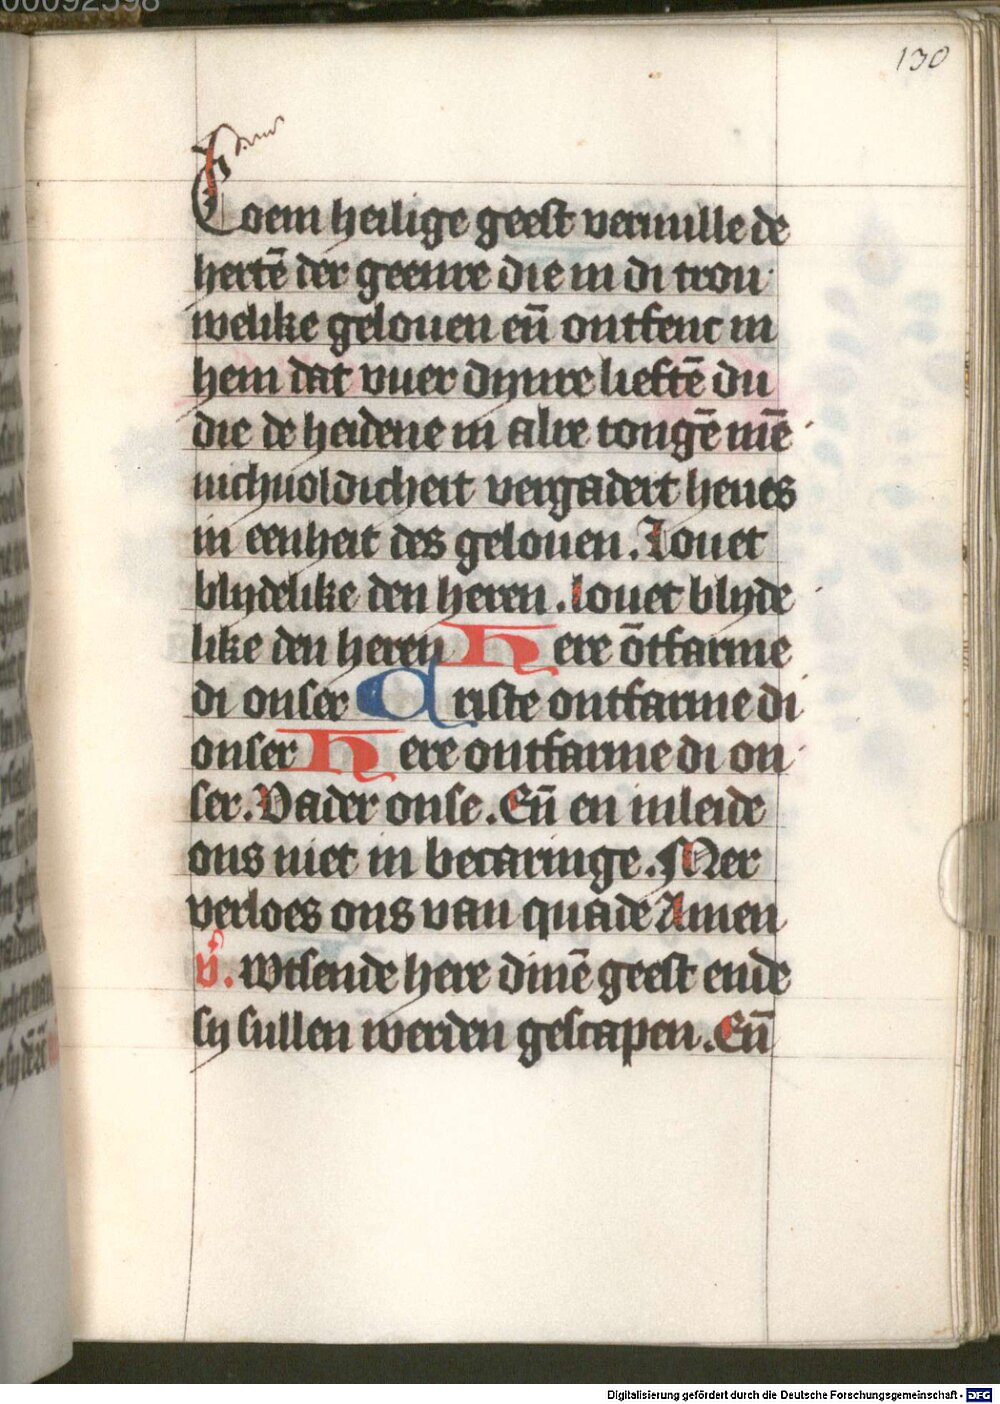 00092598
130
Coem heilige geest vervulle de
hertē der geenre die in di trou
welike gelouen eñ ontfenc in
hem dat vuer dynre lieftē du
die de heidene in alre tongē mē
nichuoldicheit vergadert heues
in eenheit des gelouen. Louet
blydelike den heren. louet blyde
like den heren Here ōtfarme
di onser Criste ontfarme di
onser Here ontfarme di on
ser. Vader onse. Eñ en inleide
ons niet in becaringe. Mer
verloes ons van quade Amen
v. Wtsende here dinē geest ende
sy sullen werden gescapen. Eñ
Digitalisierung gefördert durch die Deutsche Forschungsgemeinschaft - DFG